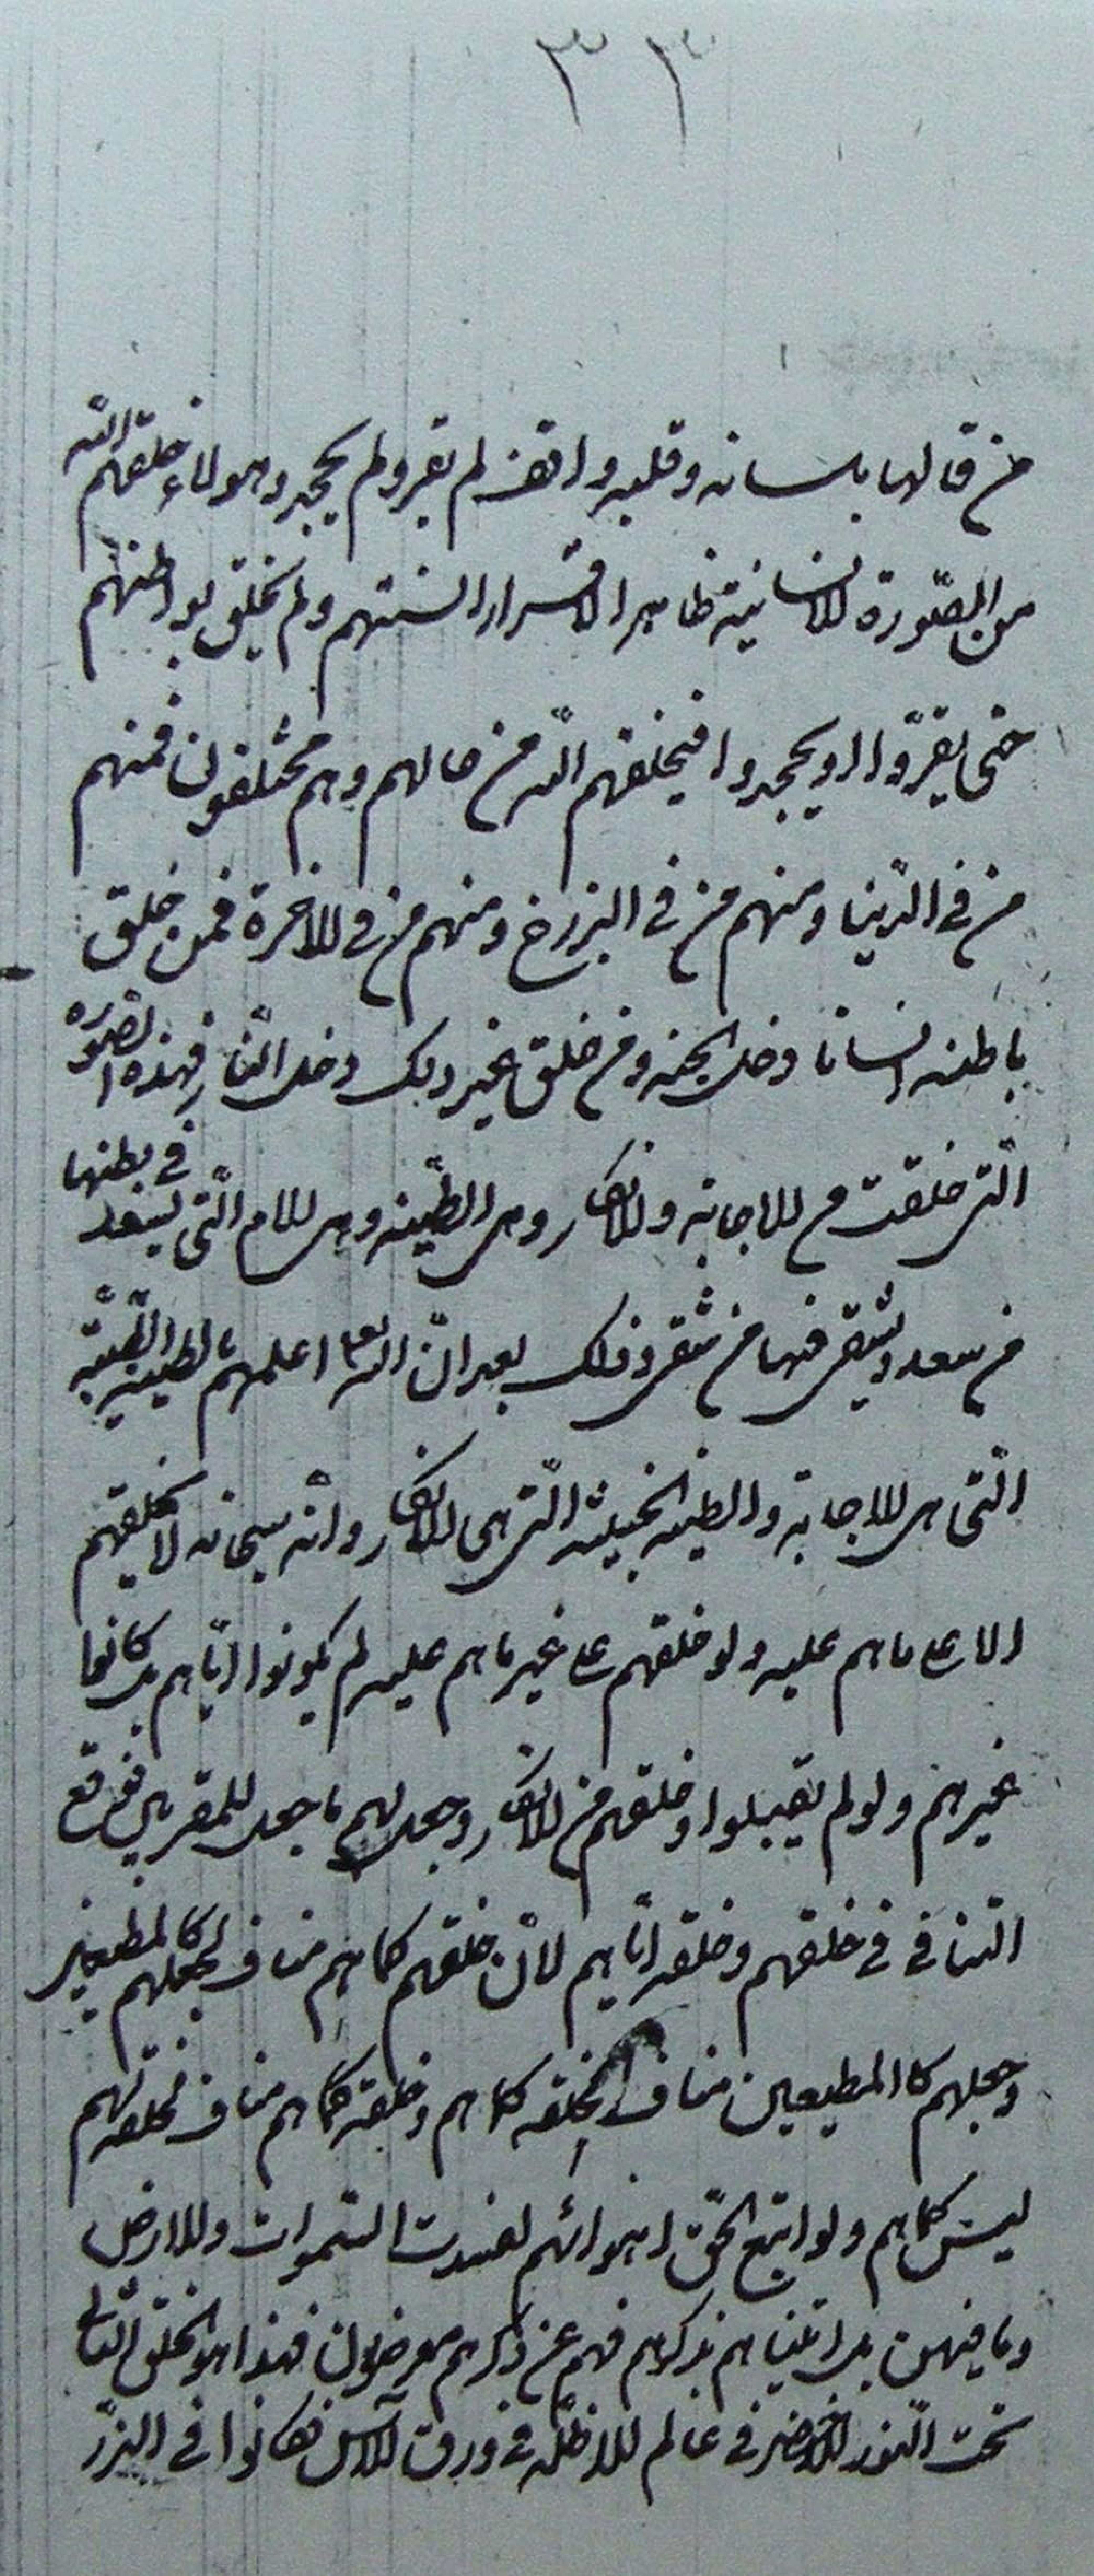 ٣٣
من قالها بلسانه وقلبه واقف لم يقر ولم يجحد وهولاء خلقهم الله
من الصّورة الانسانية ظاهرا لاقرار السنتهم ولم يخلق بواطنهم
حتى يقرّوا او يجحدوا فيخلقهم الله من حالهم وهم مختلفون فمنهم
من فى الدّنيا ومنهم من فى البرزخ ومنهم من فى الاخرة فمن خلق
باطنه انسانا دخل الجنه ومن خلق غير ذلك دخل النّار فهذه الصّورة
الّتى خلقت من الاجابة والانكار وهى الطّينه وهى الام الّتى يسعد فى بطنها
من سعد ويشقى فيها من شقى وذلك بعد انّ الله تعا اعلمهم بالطينة الطّيّبة
الّتى هى الاجابة والطينه الخبيثه الّتى هى الانكار وانّه سبحانه لا يخلقهم
الا على ما هم عليه ولو خلقهم على غير ما هم عليه لم يكونوا ايّاهم بل كانوا
غيرهم ولو لم يقبلوا وخلقهم من الانكار وجعل لهم ما جعل للمقربين فوقع
التنافى فى خلقهم وخلقه ايّاهم لانّ خلقهم كما هم مناف لجعلهم كالمطيعين
وجعلهم كالمطيعين مناف لخلقه كما هم وخلقه كما هم مناف لخلقهم
ليس كما هم ولو اتبع الحقّ اهوائهم لفسدت السّموات والارض
وما فيهن بل اتيناهم بذكرهم فهم عن ذكرهم معرضون فهذا هو الخلق الثانى
تحت النّور الاخضر فى عالم الاظلّه فى ورق الآس فكانوا فى الذّر